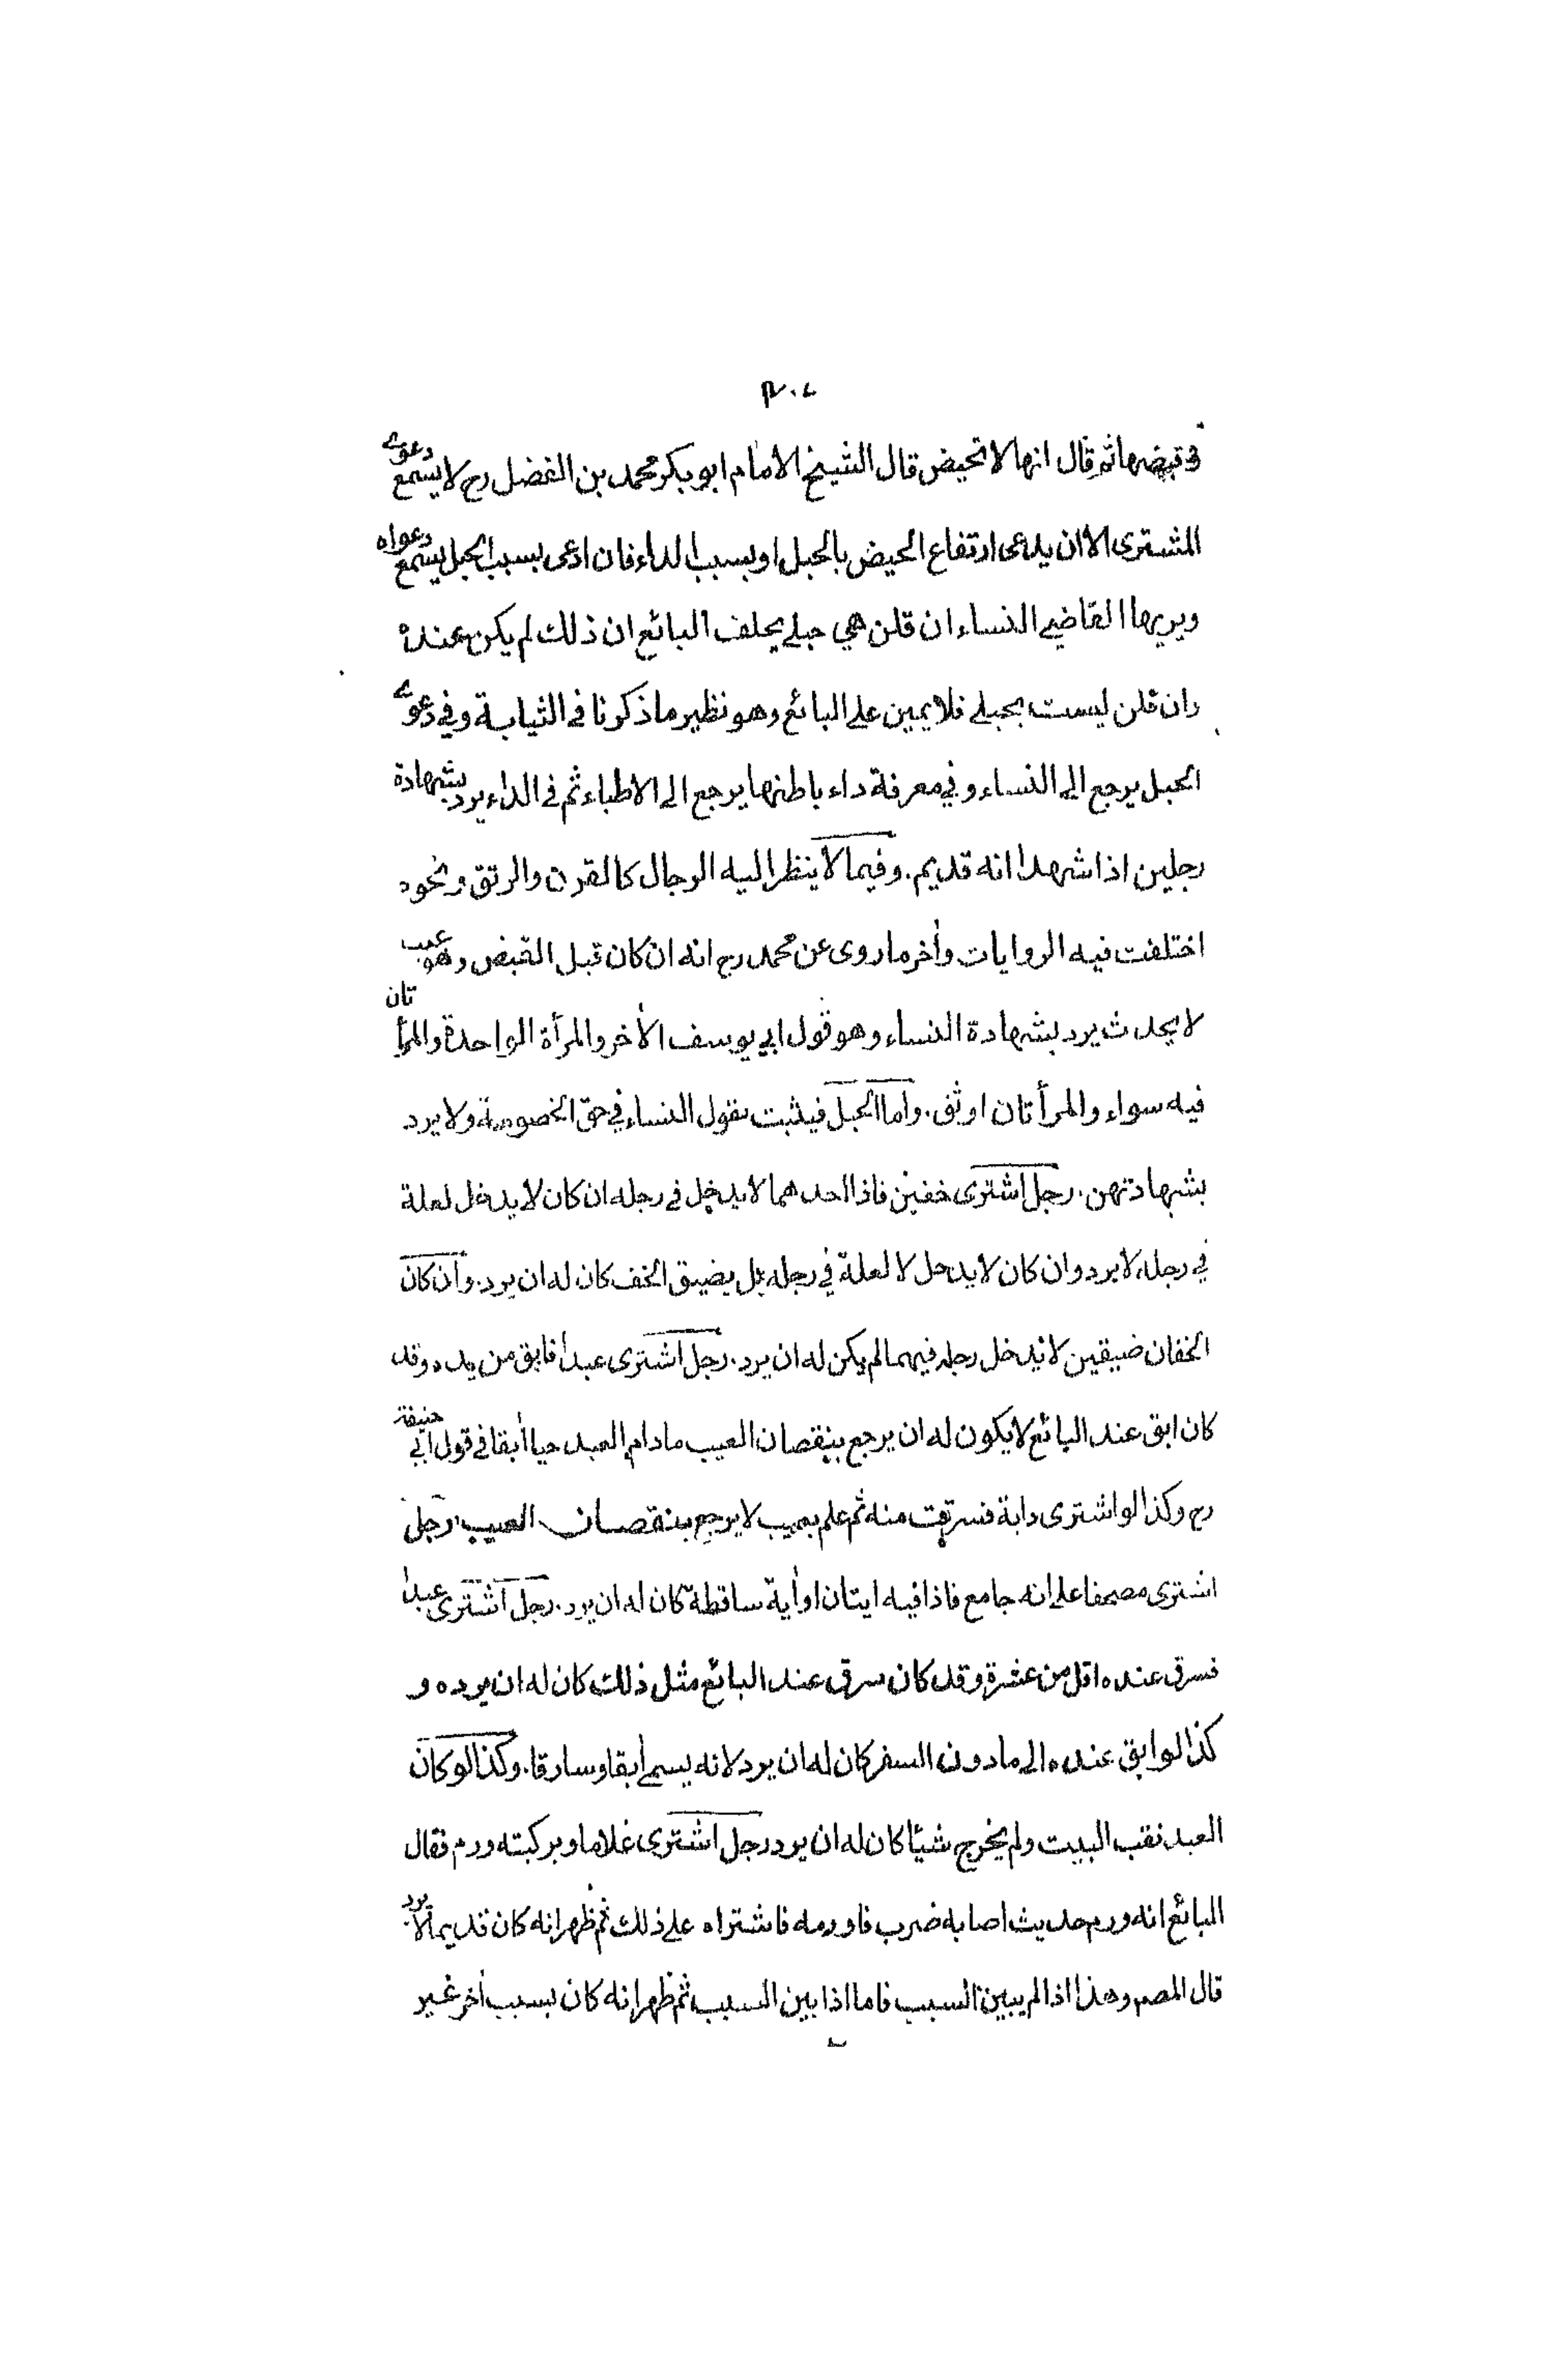 ٣٠٧
و قبضها ثم قال انها لا تحيض قال الشيخ الامام ابو بكر محمد بن الفضل رح لا يسمع دعوى
المشترى الا ان يدعى ارتفاع الحيض بالحبل او بسبب الداء فان ادعى بسبب الحبل يسمع دعواه
ويريها القاضي النساء ان قلن هي حبلى يحلف البائع ان ذلك لم يكن عنده
وان قلن ليست بحبلى فلا يمين على البائع وهو نظير ما ذكرنا في الثيابة وفي دعوى
الحبل يرجع الى النساء وفي معرفة داء باطنها يرجع الى الاطباء ثم في الداء يرد بشهادة
رجلين اذا شهدا انه قديم. وفيما لا ينظر اليه الرجال كالقرن والرتق ونحوه
اختلفت فيه الروايات وأخر ما روى عن محمد رح انه ان كان قبل القبض وهو عيب
لا يحدث يرد بشهادة النساء وهو قول ابي يوسف الأخر والمرأة الواحدة والمرأتان
فيه سواء والمرأتان اوثق. واما الحبل فيثبت بقول النساء في حق الخصومة ولا يرد
بشهادتهن. رجل اشترى خفين فاذا احدهما لا يدخل في رجله ان كان لا يدخل لعلة
في رجله لا يرد وان كان لا يدخل لا لعلة في رجله بل يضيق الخف كان له ان يرد. وان كان
الخفان ضيقين لا يدخل رجله فيهما لم يكن له ان يرد. رجل اشترى عبدا فابق من يده وقد
كان ابق عند البائع لا يكون له ان يرجع بنقصان العيب ما دام العبد حيا أبقا في قول ابي حنيفة
رح وكذا لو اشترى دابة فسرقت منه ثم علم بعيب لا يرجع بنقصان العيب. رجل
اشترى مصحفا على انه جامع فاذا فيه ايتان او أية ساقطة كان له ان يرد. رجل اشترى عبدا
فسرق عنده اقل من عشرة وقد كان سرق عند البائع مثل ذلك كان له ان يرده و
كذا لو ابق عنده الى ما دون السفر كان له ان يرد لانه يسمى أبقا وسارقا. وكذا لو كان
العبد نقب البيت ولم يخرج شيئا كان له ان يرد رجل اشترى غلاما وبركبته ورم فقال
البائع انه ورم حديث اصابه ضرب فاورمه فاشتراه على ذلك ثم ظهر انه كان قديما لا يرد
قال المصم وهذا اذا لم يبين السبب فاما اذا بين السبب ثم ظهر انه كان بسبب أخر غير